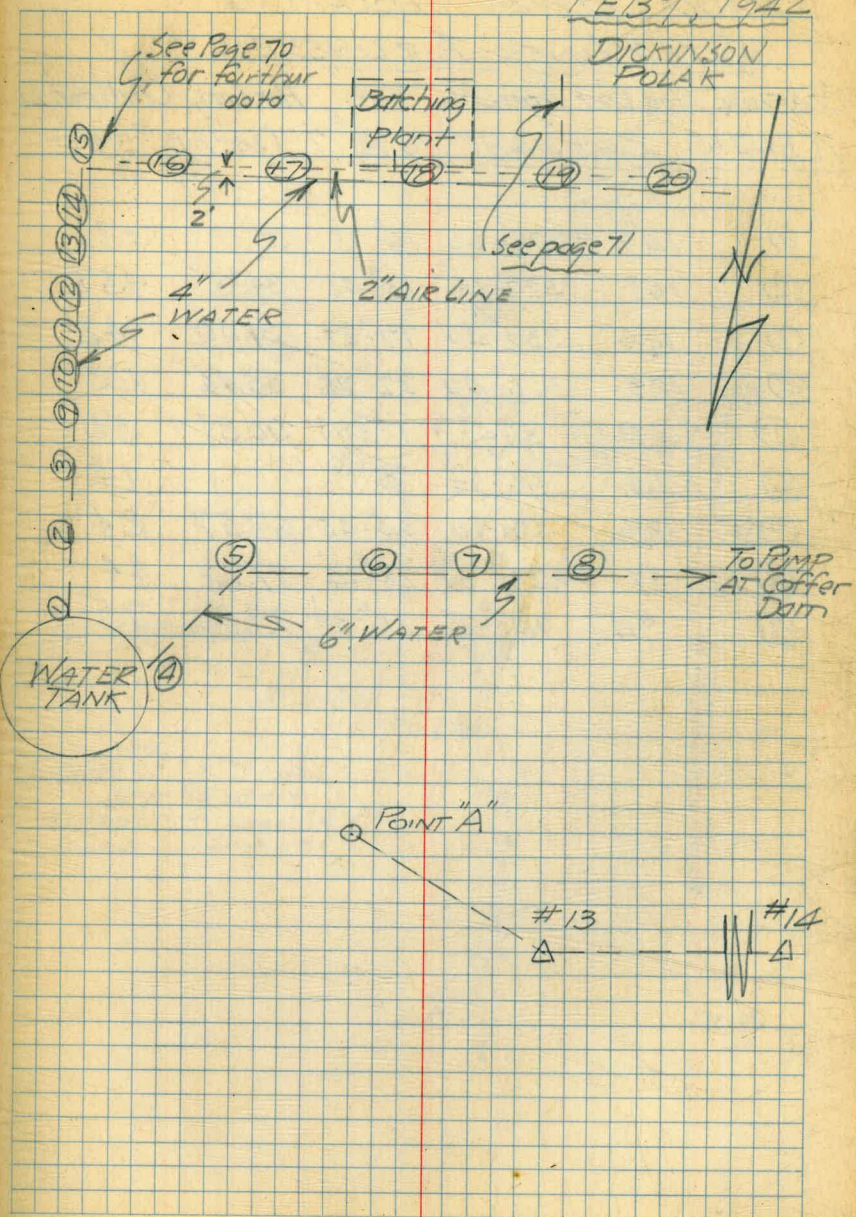 FEB 7, 1942
DICKINSON
POLAK
See Page 70
for farthur
data
Batching
Plant
15
16
17
18
19
20
2'
14
13
See page 71
4"
WATER
2" AIR LINE
12
11
10
9
N
3
2
1
5
6
7
8
To PUMP
AT Coffer
Dam
6" WATER
WATER
TANK
4
POINT "A"
#13
#14